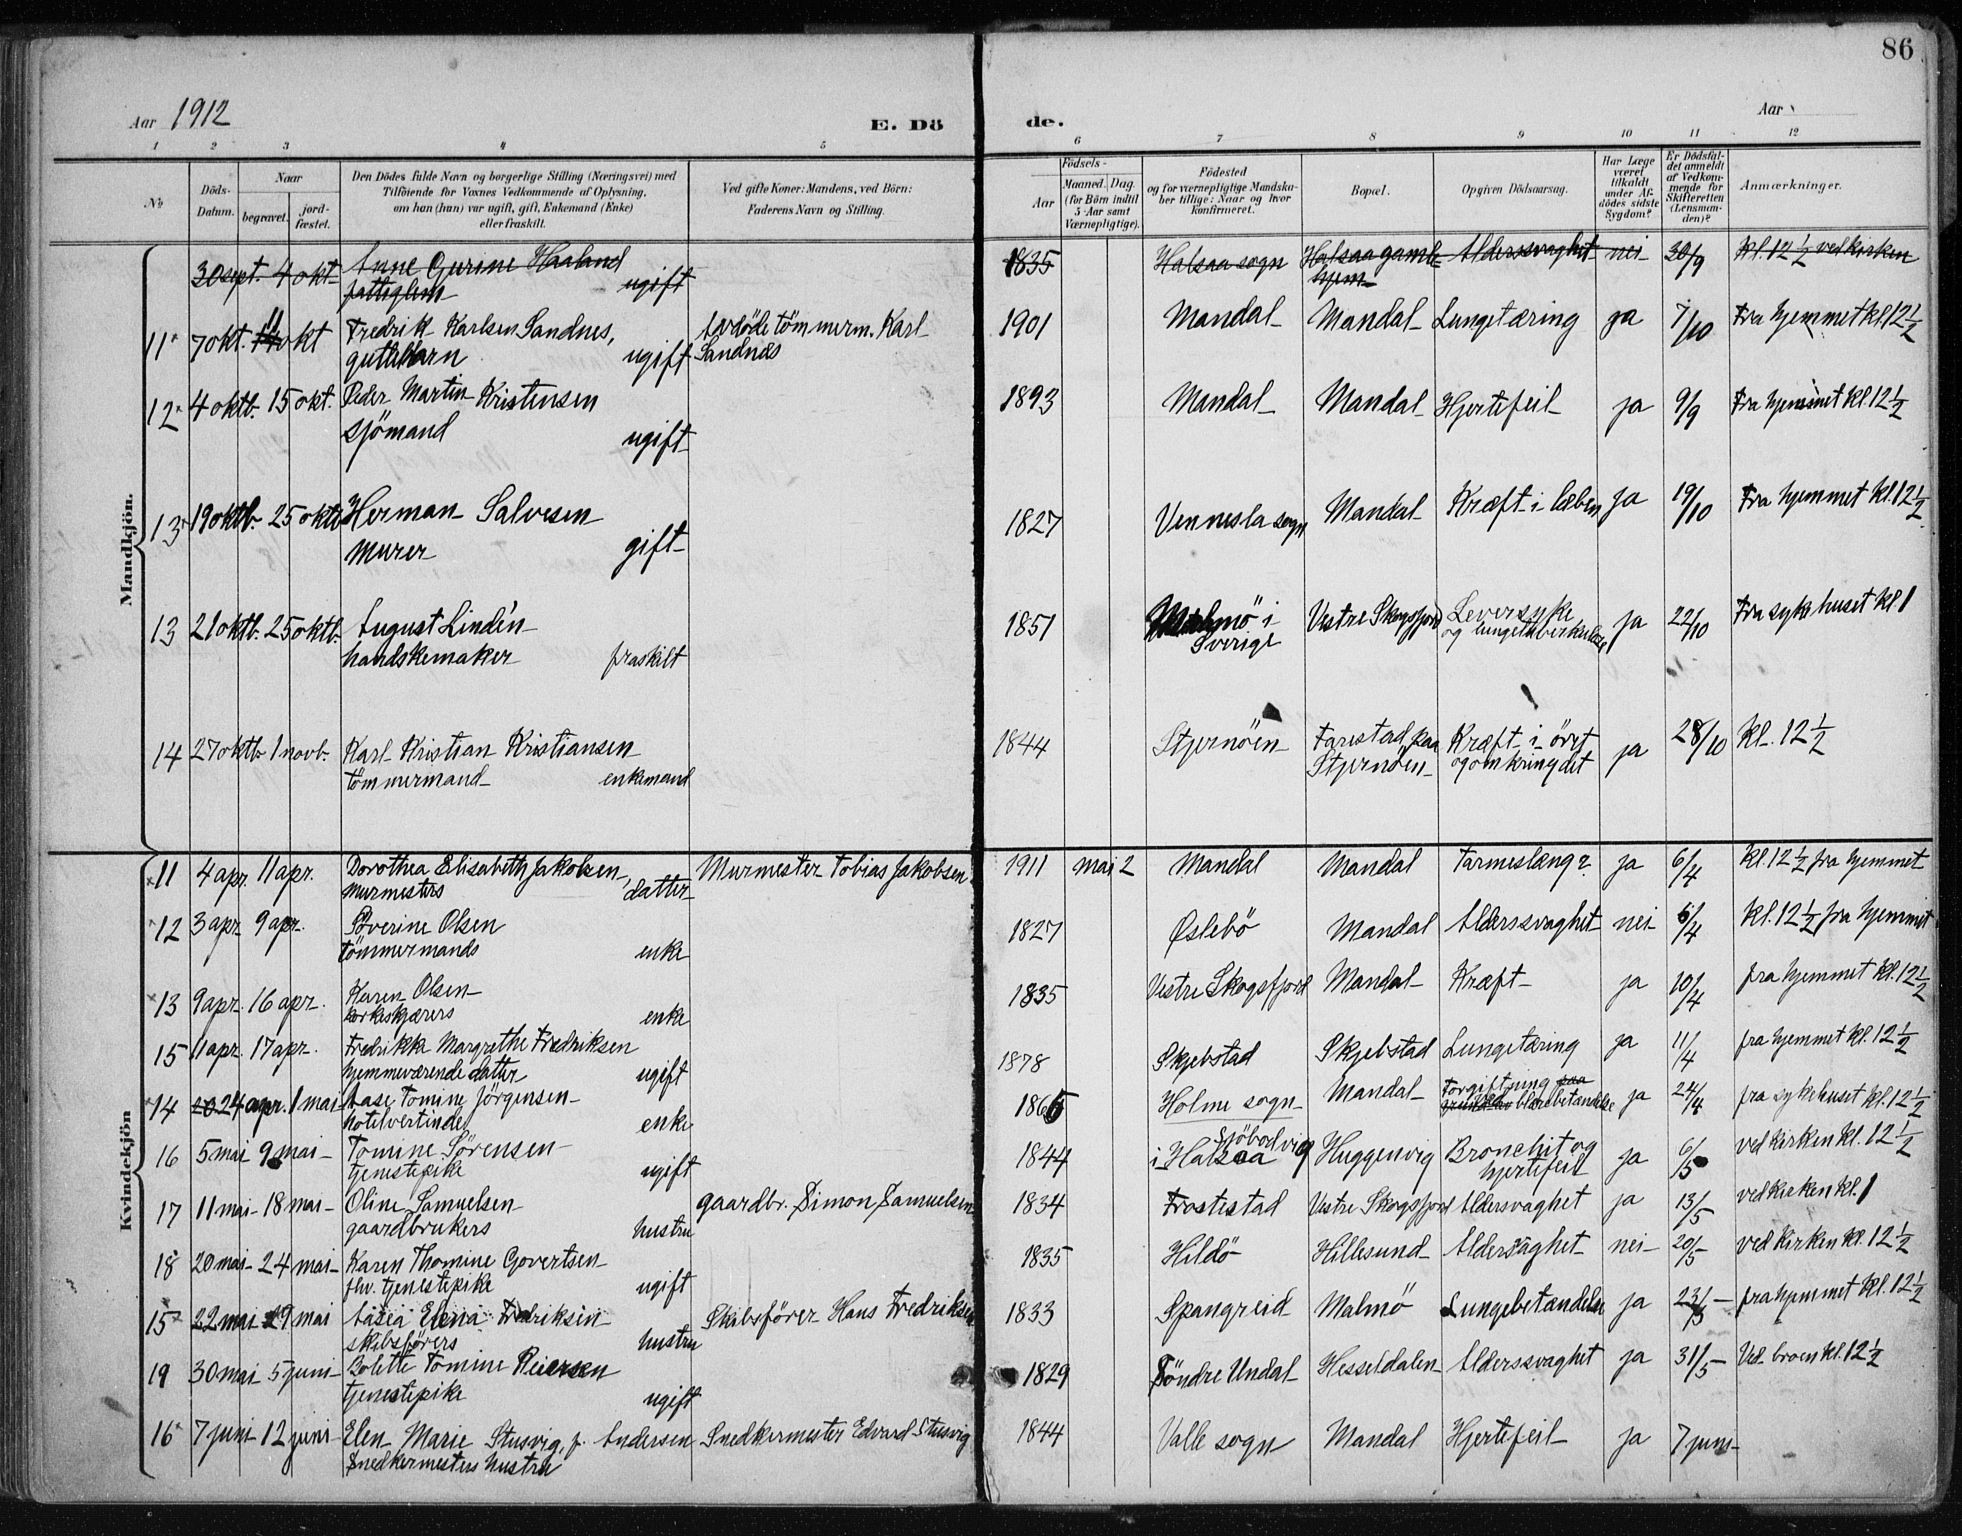 86
Aar 1912 E. Dö de. Aar
1 2 3 4 5 6 7 8 9 10 11 12
№ Döds-Datum. Naar begravet. jord-fæstet. Den Dödes fulde Navn og borgerlige Stilling (Næringsvei) med Tilföiende for Voxnes Vedkommende af Oplysning, om han (hun) var ugift, gift, Enkemand (Enke) eller fraskilt. Ved gifte Koner: Mandens, ved Börn: Faderens Navn og Stilling. Födsels- Aar Maaned. Dag. (for Börn indtil 5 Aar samt Værnepligtige). Födested og for værnepligtige Mandskaber tillige: Naar og hvor konfirmeret. Bopæl. Opgiven Dödsaarsag. Har Læge været tilkaldt under Afdödes sidste Sygdom? Er Dödsfaldet anmeldt af Vedkommende for Skifteretten (Lensmanden)? Anmærkninger.
Mandkjön.
30 sept. 4 okt. Anne Gurine Haaland 1835 Halsaa sogn Halsaa gamle Alderssvaghet nei 30/9 kl. 12 ½ ved kirken
fattiglem ugift hjem
11 7 okt. 11 okt Fredrik Karlsen Sandnes, Avdöde tömmerm. Karl 1901 Mandal Mandal Lungetæring ja 7/10 Fra hjemmet kl 12 ½
guttebarn ugift Sandnes
12 4 oktb. 15 okt. Peder Martin Kristensen 1893 Mandal Mandal Hjertefeil ja 9/9 Fra hjemmet kl. 12 ½
sjömand ugift
13 19 oktb. 25 oktb Herman Salvesen 1827 Vennesla sogn Mandal Kræft i læben ja 19/10 Fra hjemmet kl. 12 ½
murer gift
13 21 oktb. 25 oktb. August Lindén 1851 Malmö i Vestre Skogsfjord Leversyke ja 22/10 Fra sykehuset kl. 1
handskemaker fraskilt Sverige og lungetuberkulose
14 27 oktb. 1 novb. Karl Kristian Kristiansen 1844 Stjernöen Farestad paa Kræft i öret ja 28/10 kl. 12 ½
tömmermand enkemand Stjernöen og omkring det
Kvindekjön
11 4 apr. 11 apr. Dorothea Elisabeth Jakobsen, Murmester Tobias Jakobsen 1911 mai 2 Mandal Mandal Tarmeslæng? ja 6/4 kl. 12 ½ fra hjemmet
murmesters datter
12 3 apr 9 apr. Severine Olsen 1827 Øslebö Mandal Alderssvaghet nei 5/4 kl. 12 ½ fra hjemmet
tömmermands enke
13 9 apr. 16 apr. Karen Olsen 1835 Vestre Skogsfjord Mandal Kræft ja 10/4 fra hjemmet kl. 12 ½
korkeskjærers enke
15 11 apr. 17 apr. Fredrikke Margrethe Fredriksen 1878 Skjebstad Skjebstad Lungetæring ja 11/4 fra hjemmet kl. 12 ½
hjemmeværende datter ugift
14 20 24 apr. 1 mai Aase Tomine Jörgensen 1865 Holme sogn Mandal Forgiftning paa ja 24/4 fra sykehuset kl. 12 ½
hotelvertinde enke blærebetændelse
16 5 mai 9 mai Tomine Sörensen 1844 Sjöbodvig Huggenvig Bronchit og ja 6/5 ved kirken kl. 12 ½
tjenestepike ugift i Halsaa hjertefeil
17 11 mai 18 mai Oline Samuelsen gaardbr. Simon Samuelsen 1834 Frostestad Vestre Skogsfjord Aldersvaghet ja 13/5 ved kirken kl. 1
gaardbrukers hustru
18 20 mai 24 mai Karen Thomine Govertsen 1835 Hildö Hillesund Aldersvaghet nei 20/5 ved kirken kl. 12 ½
fhv. tjenestepike ugift
15 22 mai 29 mai Elena Fredriksen Skibsförer Hans Fredriksen 1833 Spangreid Malmö Lungebetændelse ja 23/5 fra hjemmet kl. 12 ½
skibsförers hustru
19 30 mai 5 juni Bolette Tomine Reiersen 1829 Söndre Undal Hesseldalen Alderssvaghet ja 31/5 Ved broen kl. 12 ½
tjenestepike ugift
16 7 juni 12 juni Elen Marie Stusvig, f. Andersen Snedkermester Edvard Stusvig 1844 Valle sogn Mandal Hjertefeil ja 7 juni
Snedkermesters hustru